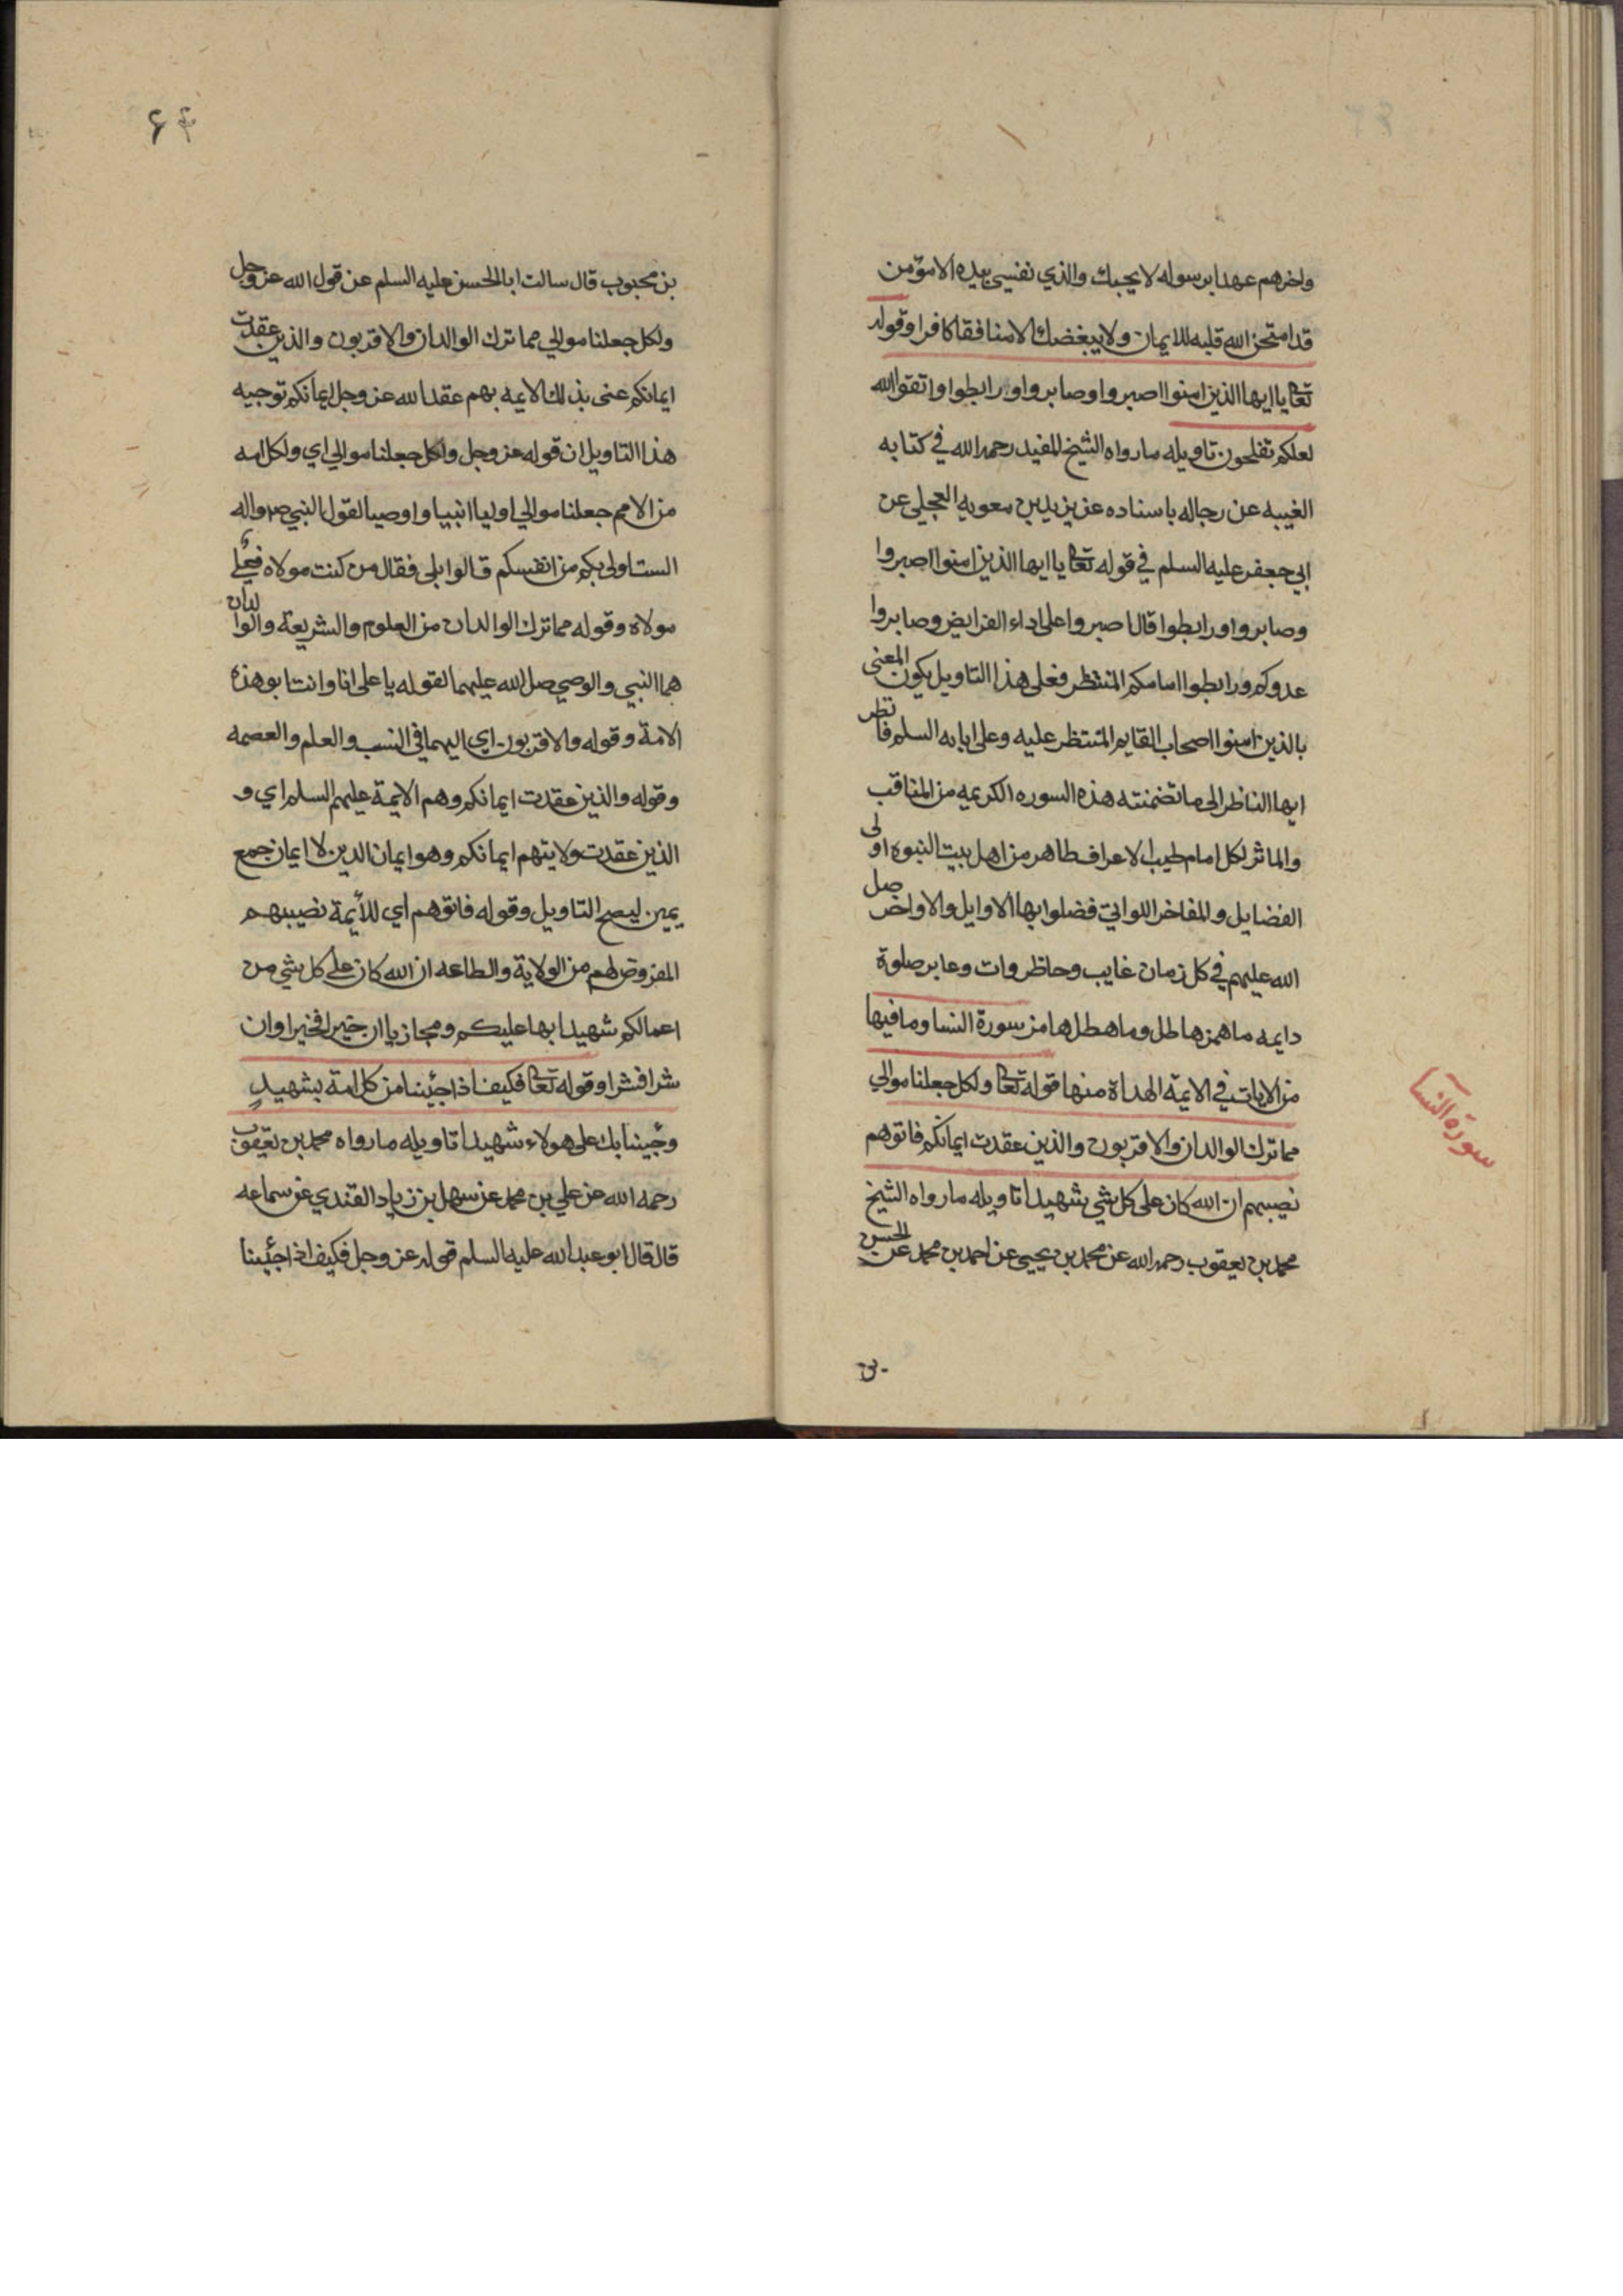 واخرهم عهدا برسوله لا يحبك والذي نفسي بيده الا مؤمن
قد امتحن الله قلبه للايمان ولا يبغضك الا منافقا كافرا وقوله
تعا يا ايها الذين امنوا اصبروا وصابروا ورابطوا واتقوا الله
لعلكم تفلحون تاويله ما رواه الشيخ المفيد رحمه الله في كتابه
الغيبه عن رجاله باسناده عن يزيد بن معويه العجلي عن
ابي جعفر عليه السلم في قوله تعا يا ايها الذين امنوا اصبروا
وصابروا ورابطوا قال اصبروا على اداء الفرايض وصابروا
عدوكم ورابطوا امامكم المنتظر فعلى هذا التاويل يكون المعنى
بالذين امنوا اصحاب القايم المنتظر عليه وعلى ابايه السلم فانظر
ايها الناظر الى ما تضمنته هذه السوره الكريمه من المناقب
والماثر لكل امام طيب الاعراف طاهر من اهل بيت النبوه اولى
الفضايل والمفاخر اللواتي فضلوا بها الاوايل والاواخر صل
الله عليهم في كل زمان غايب وحاظر وات وعابر صلوة
دايمه ما همزها طل وما هطلها مز سورة النسا وما فيها
من الايات في الايمة الهداة منها قوله تعا ولكل جعلنا موالي
مما ترك الوالدان والاقربون والذين عقدت ايمانكم فاتوهم
نصيبهم ان الله كان على كل شي شهيدا تاويله ما رواه الشيخ
محمد بن يعقوب رحمه الله عن محمد بن يحيى عن احمد بن محمد عن الحسن
سورة النسا
۶۴
بن محبوب قال سالت ابا الحسن عليه السلم عن قول الله عز وجل
ولكل جعلنا موالي مما ترك الوالدان والاقربون والذين عقدت
ايمانكم عنى بذلك الايمه بهم عقد الله عز وجل ايمانكم توجيه
هذا التاويل ان قوله عز وجل ولكل جعلنا موالي اي ولكل امه
من الامم جعلنا موالي اوليا انبيا واوصيا لقول النبي ص واله
الست اولى بكم من انفسكم قالوا بلى فقال من كنت مولاه فعلي
مولاه وقوله مما ترك الوالدان من العلوم والشريعة والوالدان
هما النبي والوصي صل الله عليهما لقوله يا على انا وانت ابو هذه
الامة وقوله والاقربون اي اليهما في النسب والعلم والعصمه
وقوله والذين عقدت ايمانكم وهم الايمة عليهم السلم اي و
الذين عقدت ولايتهم ايمانكم وهو ايمان الدين لا ايمان جمع
يمين ليصح التاويل وقوله فاتوهم اي للأيمة نصيبهم
المفروض لهم من الولاية والطاعه ان الله كان على كل شي من
اعمالكم شهيدا بها عليكم ومجازيا ان خيرا فخيرا وان
شرا فشرا وقوله تعا فكيف اذا جئينا من كل امة بشهيدٍ
وجيينا بك على هولاء شهيدا تاويله ما رواه محمد بن يعقوب
رحمه الله عن علي بن محمد عن سهل بن زياد القندي عن سماعه
قال قال ابو عبد الله عليه السلم قوله عز وجل فكيف اذا جئينا